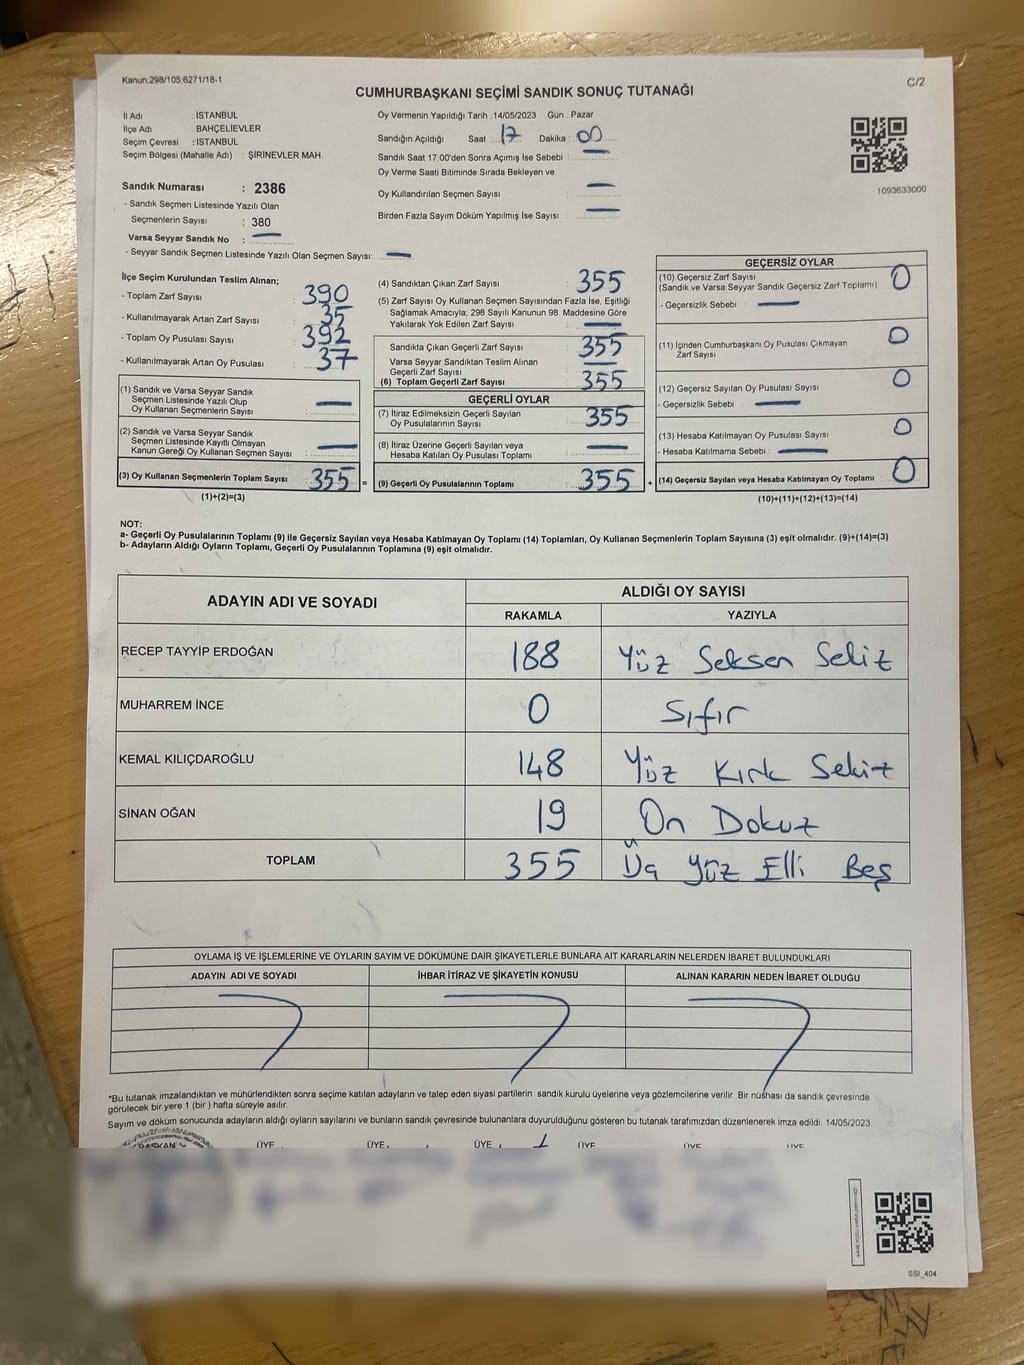 Kanun.298/105,6271/18-1
C/2
CUMHURBAŞKANI SEÇİMİ SANDIK SONUÇ TUTANAĞI
İl Adı : İSTANBUL
İlçe Adı : BAHÇELİEVLER
Seçim Çevresi : İSTANBUL
Seçim Bölgesi (Mahalle Adı) : ŞİRİNEVLER MAH.
Oy Vermenin Yapıldığı Tarih : 14/05/2023 Gün : Pazar
Sandığın Açıldığı Saat : 17 Dakika : 00
Sandık Saat 17:00'den Sonra Açımış İse Sebebi :
Oy Verme Saati Bitiminde Sırada Bekleyen ve
Oy Kullandırılan Seçmen Sayısı :
Birden Fazla Sayım Döküm Yapılmış İse Sayısı :
1093633000
Sandık Numarası : 2386
- Sandık Seçmen Listesinde Yazılı Olan
Seçmenlerin Sayısı : 380
Varsa Seyyar Sandık No :
- Seyyar Sandık Seçmen Listesinde Yazılı Olan Seçmen Sayısı:
İlçe Seçim Kurulundan Teslim Alınan;
- Toplam Zarf Sayısı : 390
- Kullanılmayarak Artan Zarf Sayısı : 35
- Toplam Oy Pusulası Sayısı : 392
- Kullanılmayarak Artan Oy Pusulası : 37
(1) Sandık ve Varsa Seyyar Sandık
Seçmen Listesinde Yazılı Olup
Oy Kullanan Seçmenlerin Sayısı :
(2) Sandık ve Varsa Seyyar Sandık
Seçmen Listesinde Kayıtlı Olmayan
Kanun Gereği Oy Kullanan Seçmen Sayısı :
(3) Oy Kullanan Seçmenlerin Toplam Sayısı : 355 =
(1)+(2)=(3)
(4) Sandıktan Çıkan Zarf Sayısı : 355
(5) Zarf Sayısı Oy Kullanan Seçmen Sayısından Fazla İse, Eşitliği
Sağlamak Amacıyla; 298 Sayılı Kanunun 98. Maddesine Göre
Yakılarak Yok Edilen Zarf Sayısı :
Sandıkta Çıkan Geçerli Zarf Sayısı : 355
Varsa Seyyar Sandıktan Teslim Alınan
Geçerli Zarf Sayısı :
(6) Toplam Geçerli Zarf Sayısı : 355
GEÇERLİ OYLAR
(7) İtiraz Edilmeksizin Geçerli Sayılan
Oy Pusulalarının Sayısı : 355
(8) İtiraz Üzerine Geçerli Sayılan veya
Hesaba Katılan Oy Pusulası Toplamı :
(9) Geçerli Oy Pusulalarının Toplamı : 355 +
GEÇERSİZ OYLAR
(10) Geçersiz Zarf Sayısı
(Sandık ve Varsa Seyyar Sandık Geçersiz Zarf Toplamı) : 0
- Geçersizlik Sebebi :
(11) İçinden Cumhurbaşkanı Oy Pusulası Çıkmayan
Zarf Sayısı : 0
(12) Geçersiz Sayılan Oy Pusulası Sayısı : 0
- Geçersizlik Sebebi :
(13) Hesaba Katılmayan Oy Pusulası Sayısı : 0
- Hesaba Katılmama Sebebi :
(14) Geçersiz Sayılan veya Hesaba Katılmayan Oy Toplamı : 0
(10)+(11)+(12)+(13)=(14)
NOT:
a- Geçerli Oy Pusulalarının Toplamı (9) ile Geçersiz Sayılan veya Hesaba Katılmayan Oy Toplamı (14) Toplamları, Oy Kullanan Seçmenlerin Toplam Sayısına (3) eşit olmalıdır. (9)+(14)=(3)
b- Adayların Aldığı Oyların Toplamı, Geçerli Oy Pusulalarının Toplamına (9) eşit olmalıdır.
ADAYIN ADI VE SOYADI
ALDIĞI OY SAYISI
RAKAMLA YAZIYLA
RECEP TAYYİP ERDOĞAN 188 Yüz Seksen Sekiz
MUHARREM İNCE 0 Sıfır
KEMAL KILIÇDAROĞLU 148 Yüz Kırk Sekiz
SİNAN OĞAN 19 On Dokuz
TOPLAM 355 Üç Yüz Elli Beş
OYLAMA İŞ VE İŞLEMLERİNE VE OYLARIN SAYIM VE DÖKÜMÜNE DAİR ŞİKAYETLERLE BUNLARA AİT KARARLARIN NELERDEN İBARET BULUNDUKLARI
ADAYIN ADI VE SOYADI İHBAR İTİRAZ VE ŞİKAYETİN KONUSU ALINAN KARARIN NEDEN İBARET OLDUĞU
*Bu tutanak imzalandıktan ve mühürlendikten sonra seçime katılan adayların ve talep eden siyasi partilerin sandık kurulu üyelerine veya gözlemcilerine verilir. Bir nüshası da sandık çevresinde
görülecek bir yere 1 (bir ) hafta süreyle asılır.
Sayım ve döküm sonucunda adayların aldığı oyların sayılarını ve bunların sandık çevresinde bulunanlara duyurulduğunu gösteren bu tutanak tarafımızdan düzenlenerek imza edildi. 14/05/2023
BAŞKAN ÜYE ÜYE ÜYE ÜYE ÜYE ÜYE
SSI_404